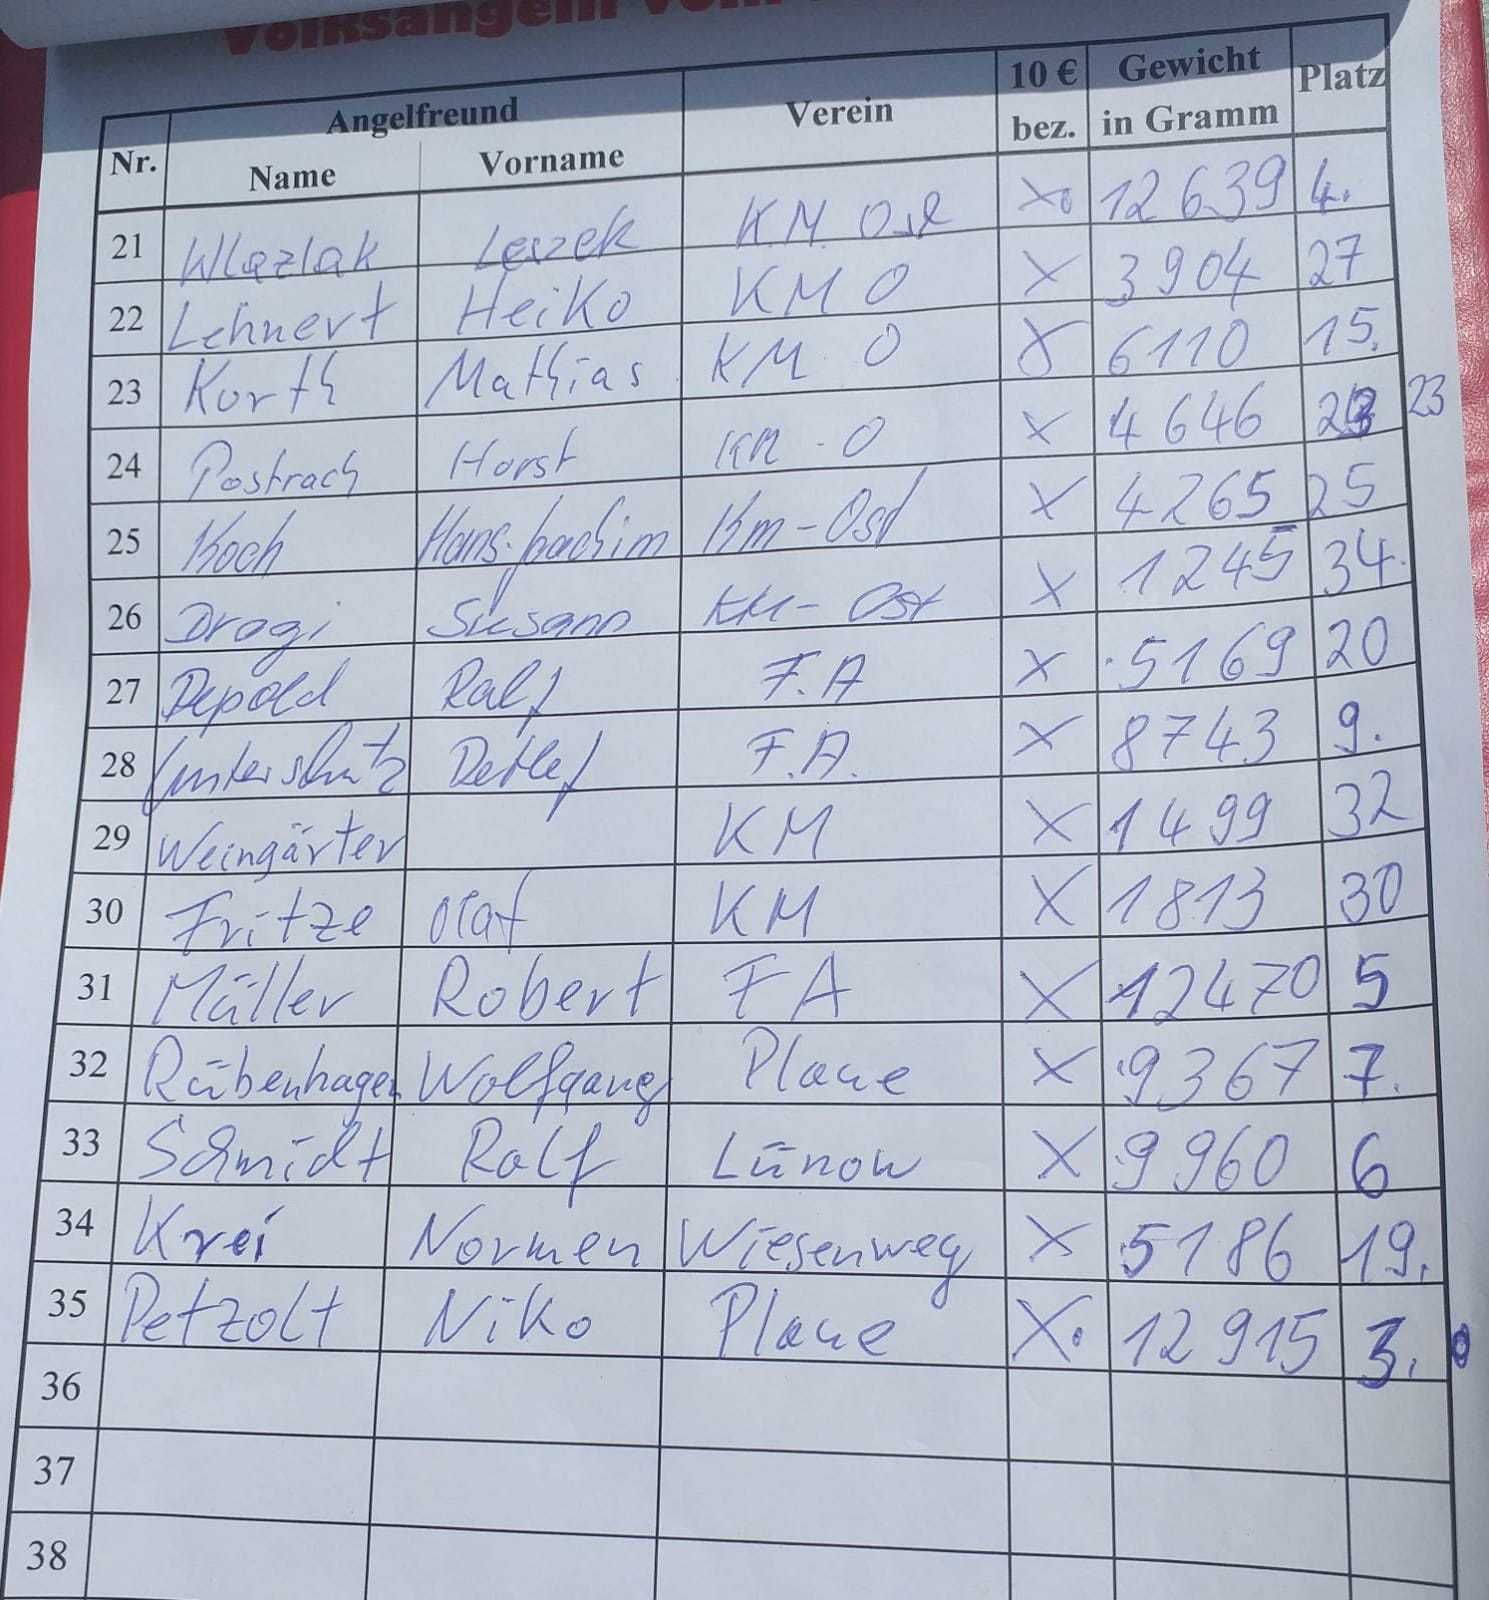 Volksangeln vom
Nr. Angelfreund Verein 10 € bez. Gewicht in Gramm Platz
Name Vorname
21 Wlazlak Leszek K.M. Ost X 12 639 4.
22 Lehnert Heiko KM O X 3904 27
23 Korth Mathias KM O X 6110 15.
24 Postrach Horst KM - O X 4646 23 23
25 Koch Hans-Joachim Km-Ost X 4265 25
26 Dragi Susann KM-Ost X 1245 34.
27 Depold Ralf F.A X 5169 20
28 Unterschütz Detlef F.A. X 8743 9.
29 Weingärter KM X 1499 32
30 Fritze Olaf KM X 1813 30
31 Müller Robert FA X 12470 5
32 Rübenhagen Wolfgang Plaue X 9367 7.
33 Schmidt Ralf Lünow X 9960 6
34 Krei Normen Wiesenweg X 5186 19.
35 Petzolt Niko Plaue X. 12 915 3.
36
37
38